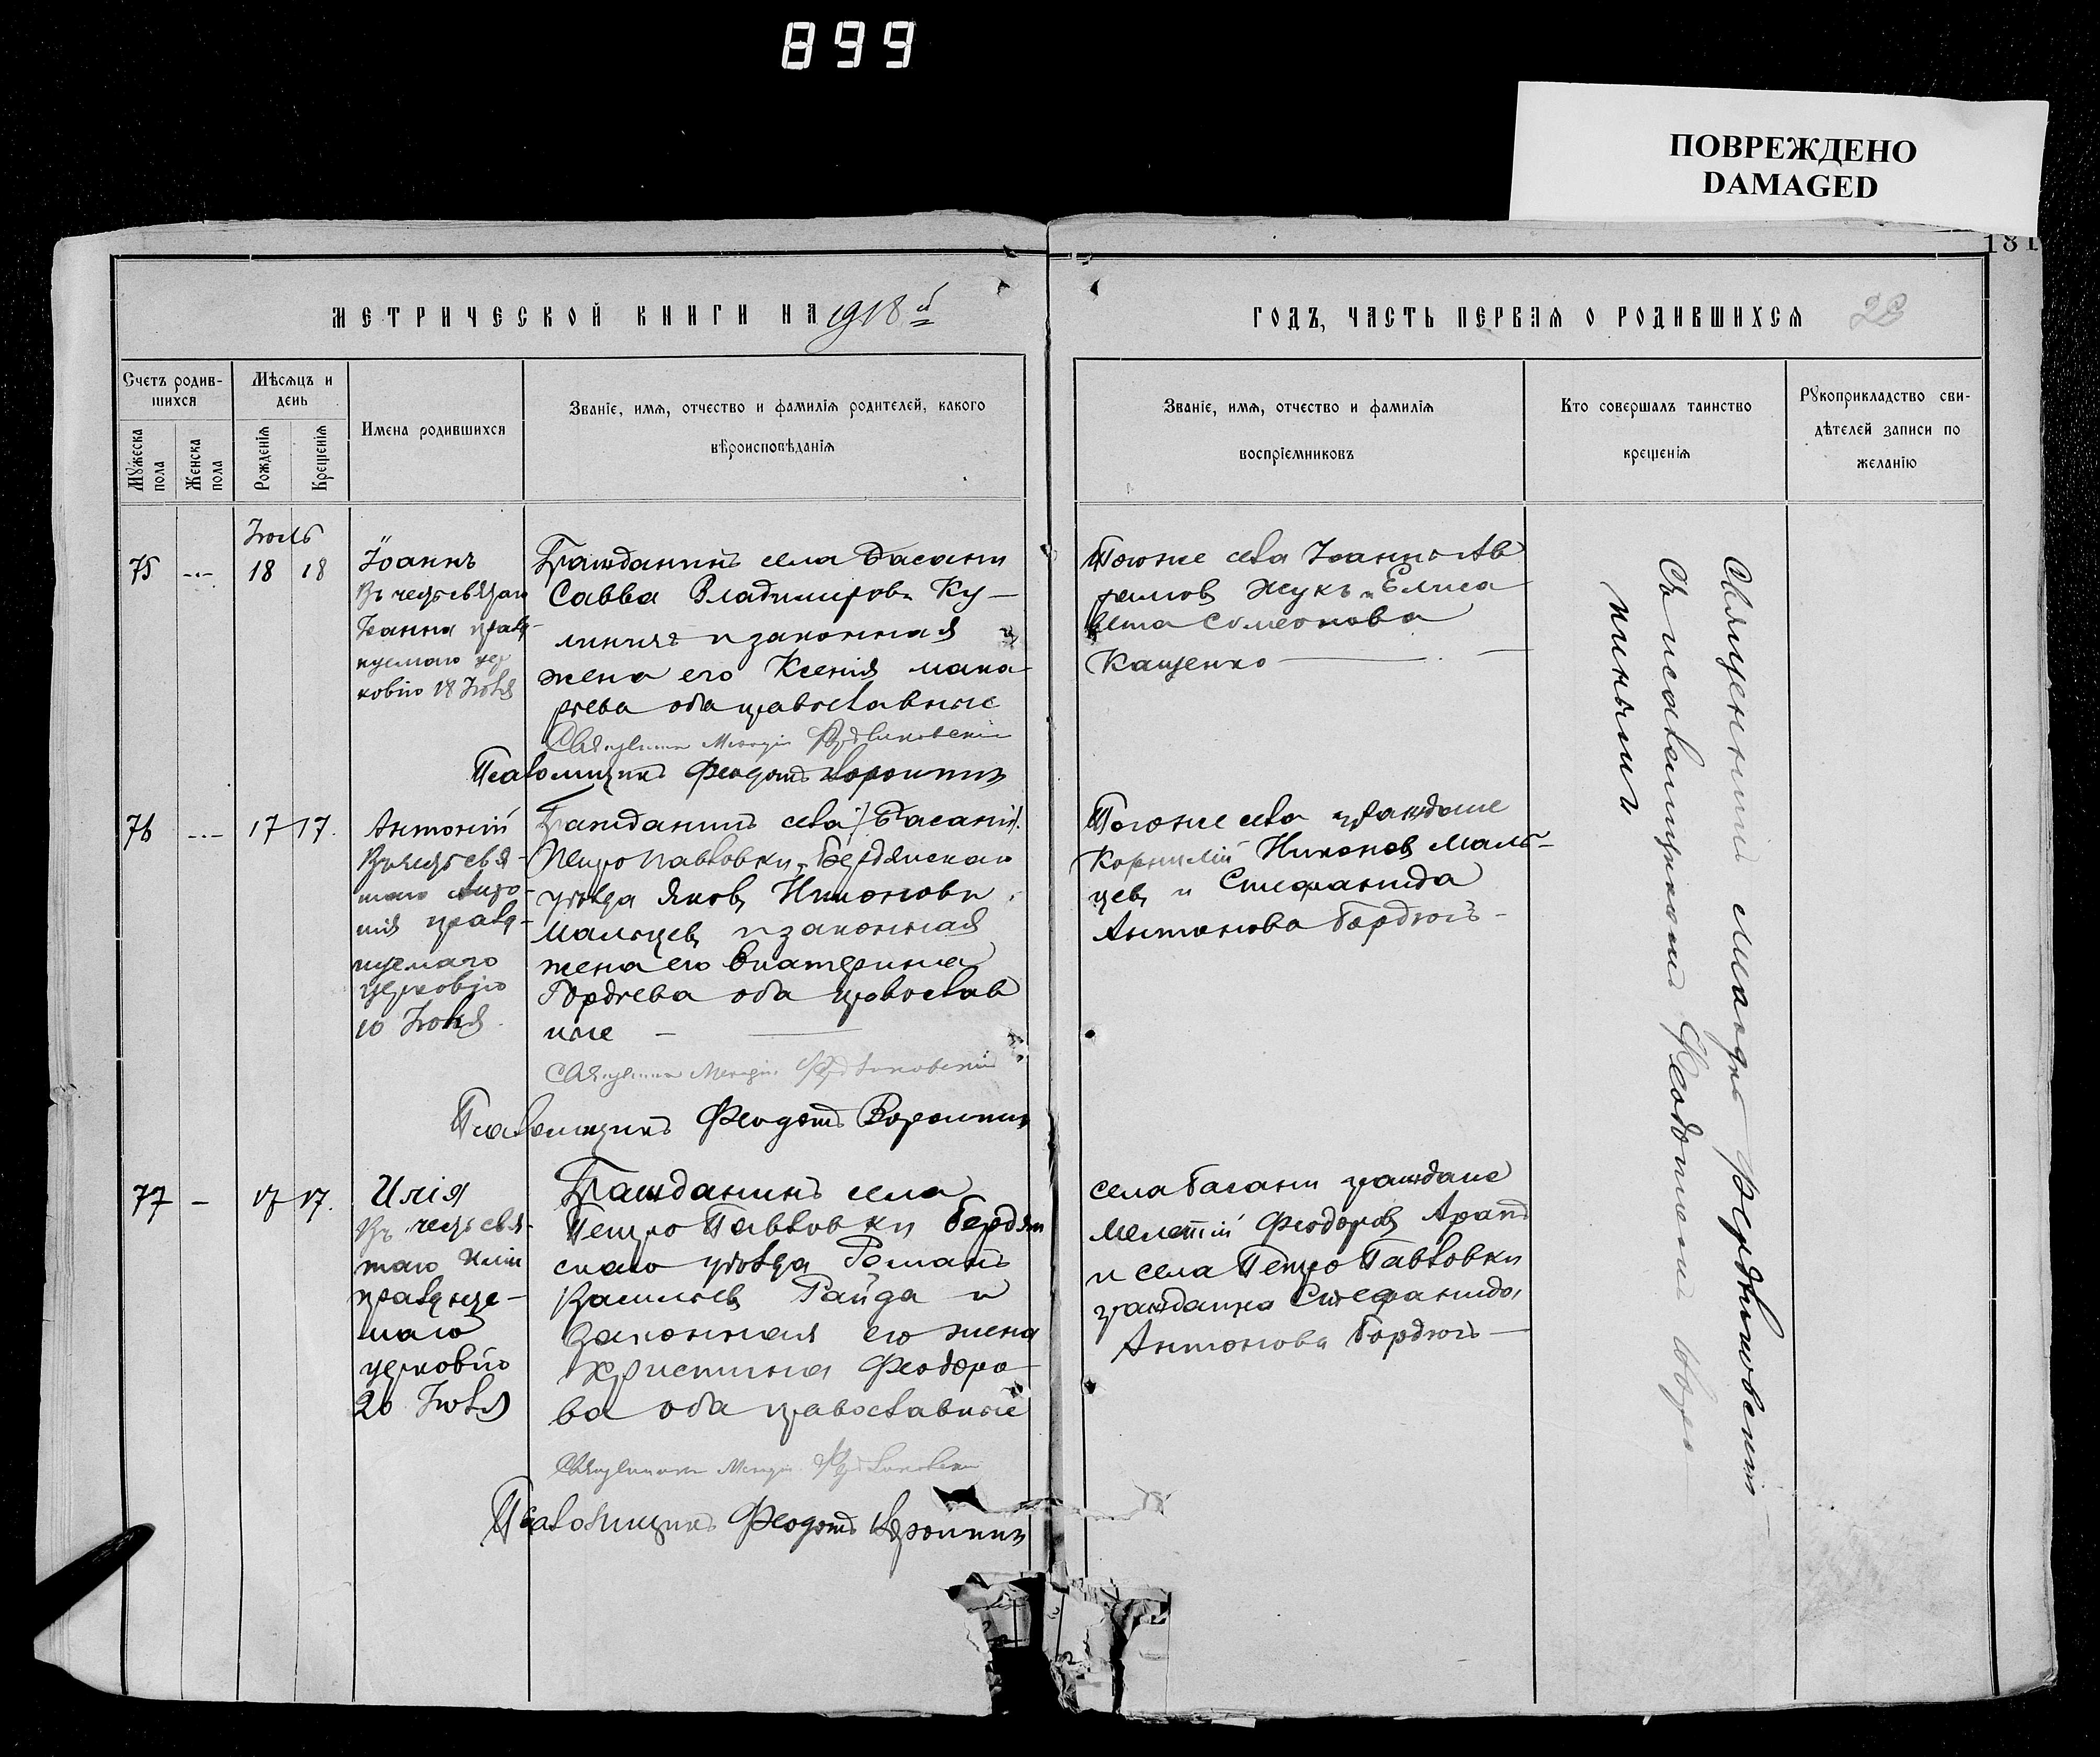 899
ПОВРЕЖДЕНО
DAMAGED
181
МЕТРИЧЕСКОЙ КНИГИ НА 1918 й
ГОДЪ, ЧАСТЬ ПЕРВАЯ О РОДИВШИХСЯ
Счетъ родив-
шихся
Мужеска пола
Женска пола
Мѣсяцъ и
день
Рожденія
Крещенія
Имена родившихся
Званіе, имя, отчество и фамилія родителей, какого
вѣроисповѣданія
Званіе, имя, отчество и фамилія
воспріемниковъ
Кто совершалъ таинство
крещенія
Рукоприкладство сви-
дѣтелей записи по
желанію
Іюль
75 - 18 18
Іоаннъ
Въ честь святаго
Іоанна празд-
нуемаго цер
ковію 18 Іюля
Гражданинъ села Басани
Савва Владимировъ Ку-
и законная
жена его Ксенія Мака
рьева оба православные
Священникъ
Псаломщикъ Феодотъ Воропинин
Тогоже села Іоаннъ Ав
рамовъ Жукъ и Елиса
вета Симеонова
Кащенко
76 - 17 17.
Антоній
Въ честь свя-
таго Анто-
нія празд-
нуемаго
церковію
10 Іюля
Гражданинъ села /Басани/
Петропавловки, Бердянскаго
уѣзда Яковъ
Мальцевъ и законная
жена его Екатерина
Гордѣева оба православ
ные
Священникъ
Псаломщикъ Феодотъ
Тогоже села граждане
Корнилій Никоновъ Маль-
цевъ и Стефанида
Антонова Бордюгъ
77 - 17 17.
Илія
Въ честь свя-
таго Иліи
празднуе-
маго
церковію
20 Іюля
Гражданинъ села
Петро Павловки Бердян
скаго уѣзда Романъ
Васильевъ Гайда и
законная его жена
Христина Феодоро-
ва оба православные
Священникъ
Псаломщикъ Феодотъ
села Басани граждане
Мелетій Феодоровъ Арапъ
и села Петро Павловки
гражданка Стефанида
Антонова Бордюгъ
Священникъ
Съ псаломщикомъ Феодотомъ